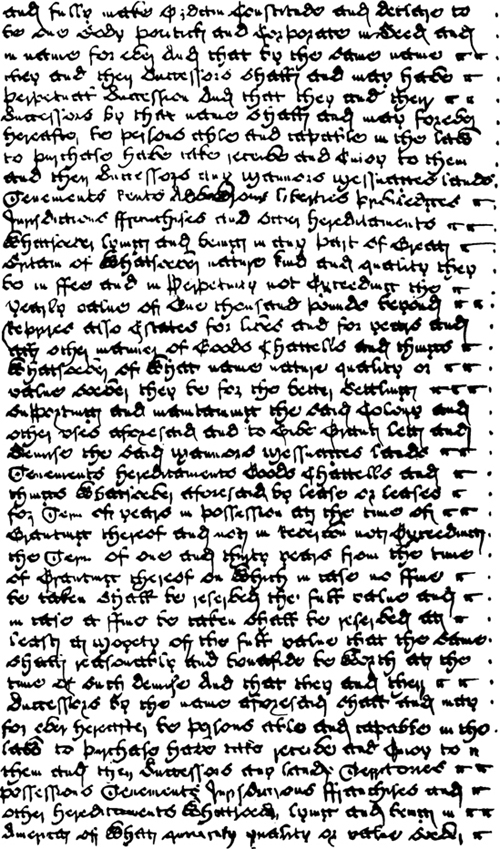 and fully make Ordain Constitute and declare to
be one Body politick and Corporate in Deed and
in name for ever And that by the same name
they and their Successors shall and may have
perpetual Succession And that they and their
Successors by that name shall and may forever
hereafter be persons able and capable in the Law
to purchase have take receive and Enjoy to them
and their Successors any Mannors Messuages Lands
Tenements Rents Advowsons liberties priviledges
Jurisdictions ffranchises and other hereditaments
Whatsoever lying and being in any part of Great
Britain of Whatsoever nature kind and quality they
be in ffee and in Perpetuity not Exceeding the
yearly value of One thousand pounds beyond
Reprizes also Estates for lives and for years and
all other manner of Goods Chattells and things
Whatsoever of What name nature quality or
value soever they be for the better Settling
Supporting and maintaining the said Colony and
other uses aforesaid and to Give Grant Lett and
demise the said Mannors Messuages Lands
Tenements hereditaments Goods Chattells and
things Whatsoever aforesaid by lease or leases
for Term of years in possession att the time of
Granting thereof and nott in Revercion nott Exceeding
the Term of one and thirty years from the time
of Granting thereof on Which in case no ffine
be taken Shall be reserved the full value and
in case a ffine be taken shall be reserved att
least a moyety of the full value that the same
Shall reasonably and bonafide be Worth att the
time of such demise And that they and their
Successors by the name aforesaid shall and may
for ever hereafter be persons able and capable in the
Law to purchase have take receive and Enjoy to
them and their Successors any Lands Territories
possessions Tenements Jurisdictions ffranchises and
other hereditaments Whatsoever lying and being in
America of What quantity quality or value soever